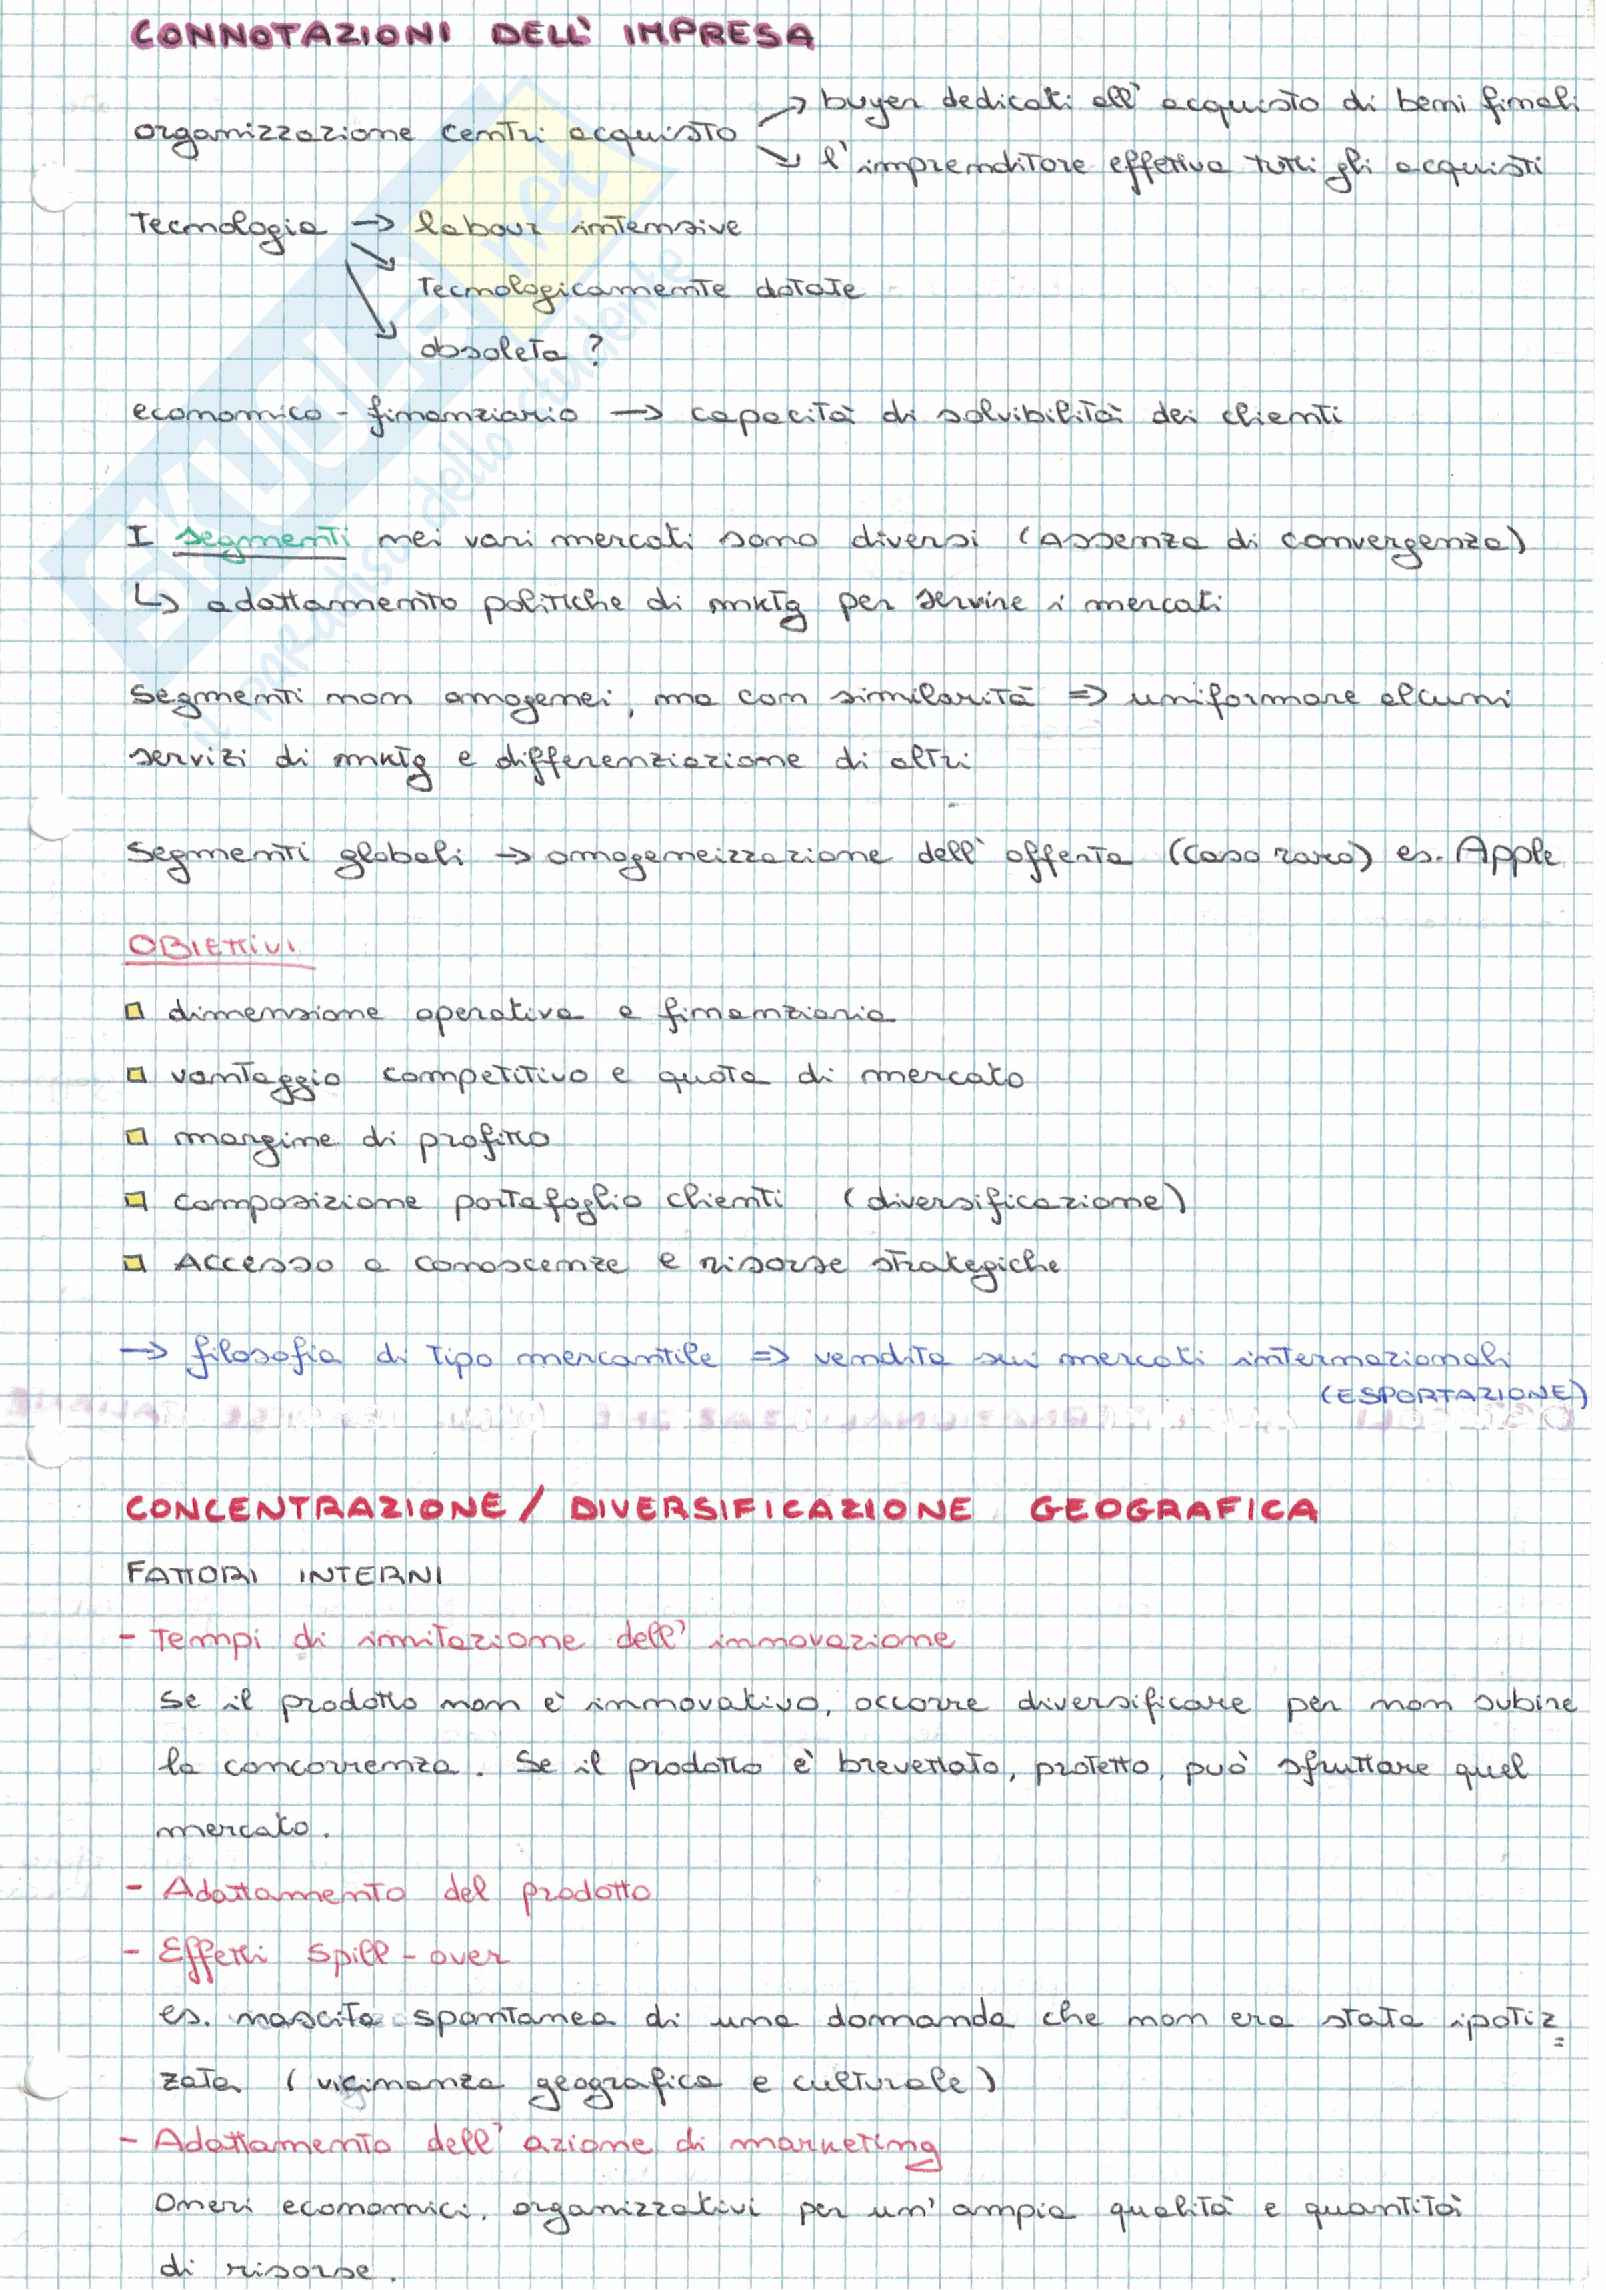 CONNOTAZIONI DELL'IMPRESA
→ buyer dedicati all'acquisto di beni finali
organizzazione centri acquisto
↘ l'imprenditore effettua tutti gli acquisti
Tecnologia → labour intensive
Tecnologicamente dotate
obsoleta ?
economico - finanziario → capacità di solvibilità dei clienti
I segmenti nei vari mercati sono diversi (assenza di convergenza)
↳ adattamento politiche di mktg per servire i mercati
Segmenti non omogenei, ma con similarità => uniformare alcuni
servizi di mktg e differenziazione di altri
Segmenti globali → omogeneizzazione dell'offerta (caso raro) es. Apple
OBIETTIVI
dimensione operativa e finanziaria
vantaggio competitivo e quota di mercato
margine di profitto
composizione portafoglio clienti (diversificazione)
Accesso a conoscenze e risorse strategiche
→ filosofia di tipo mercantile => vendita sui mercati internazionali
(ESPORTAZIONE)
CONCENTRAZIONE / DIVERSIFICAZIONE GEOGRAFICA
FATTORI INTERNI
- Tempi di imitazione dell'innovazione
Se il prodotto non è innovativo, occorre diversificare per non subire
la concorrenza. Se il prodotto è brevettato, protetto, può sfruttare quel
mercato.
- Adattamento del prodotto
- Effetti Spill-over
es. nascita spontanea di una domanda che non era stata ipotiz=
zata (vicinanza geografica e culturale)
- Adattamento dell'azione di marketing
Oneri economici, organizzativi per un'ampia qualità e quantità
di risorse.